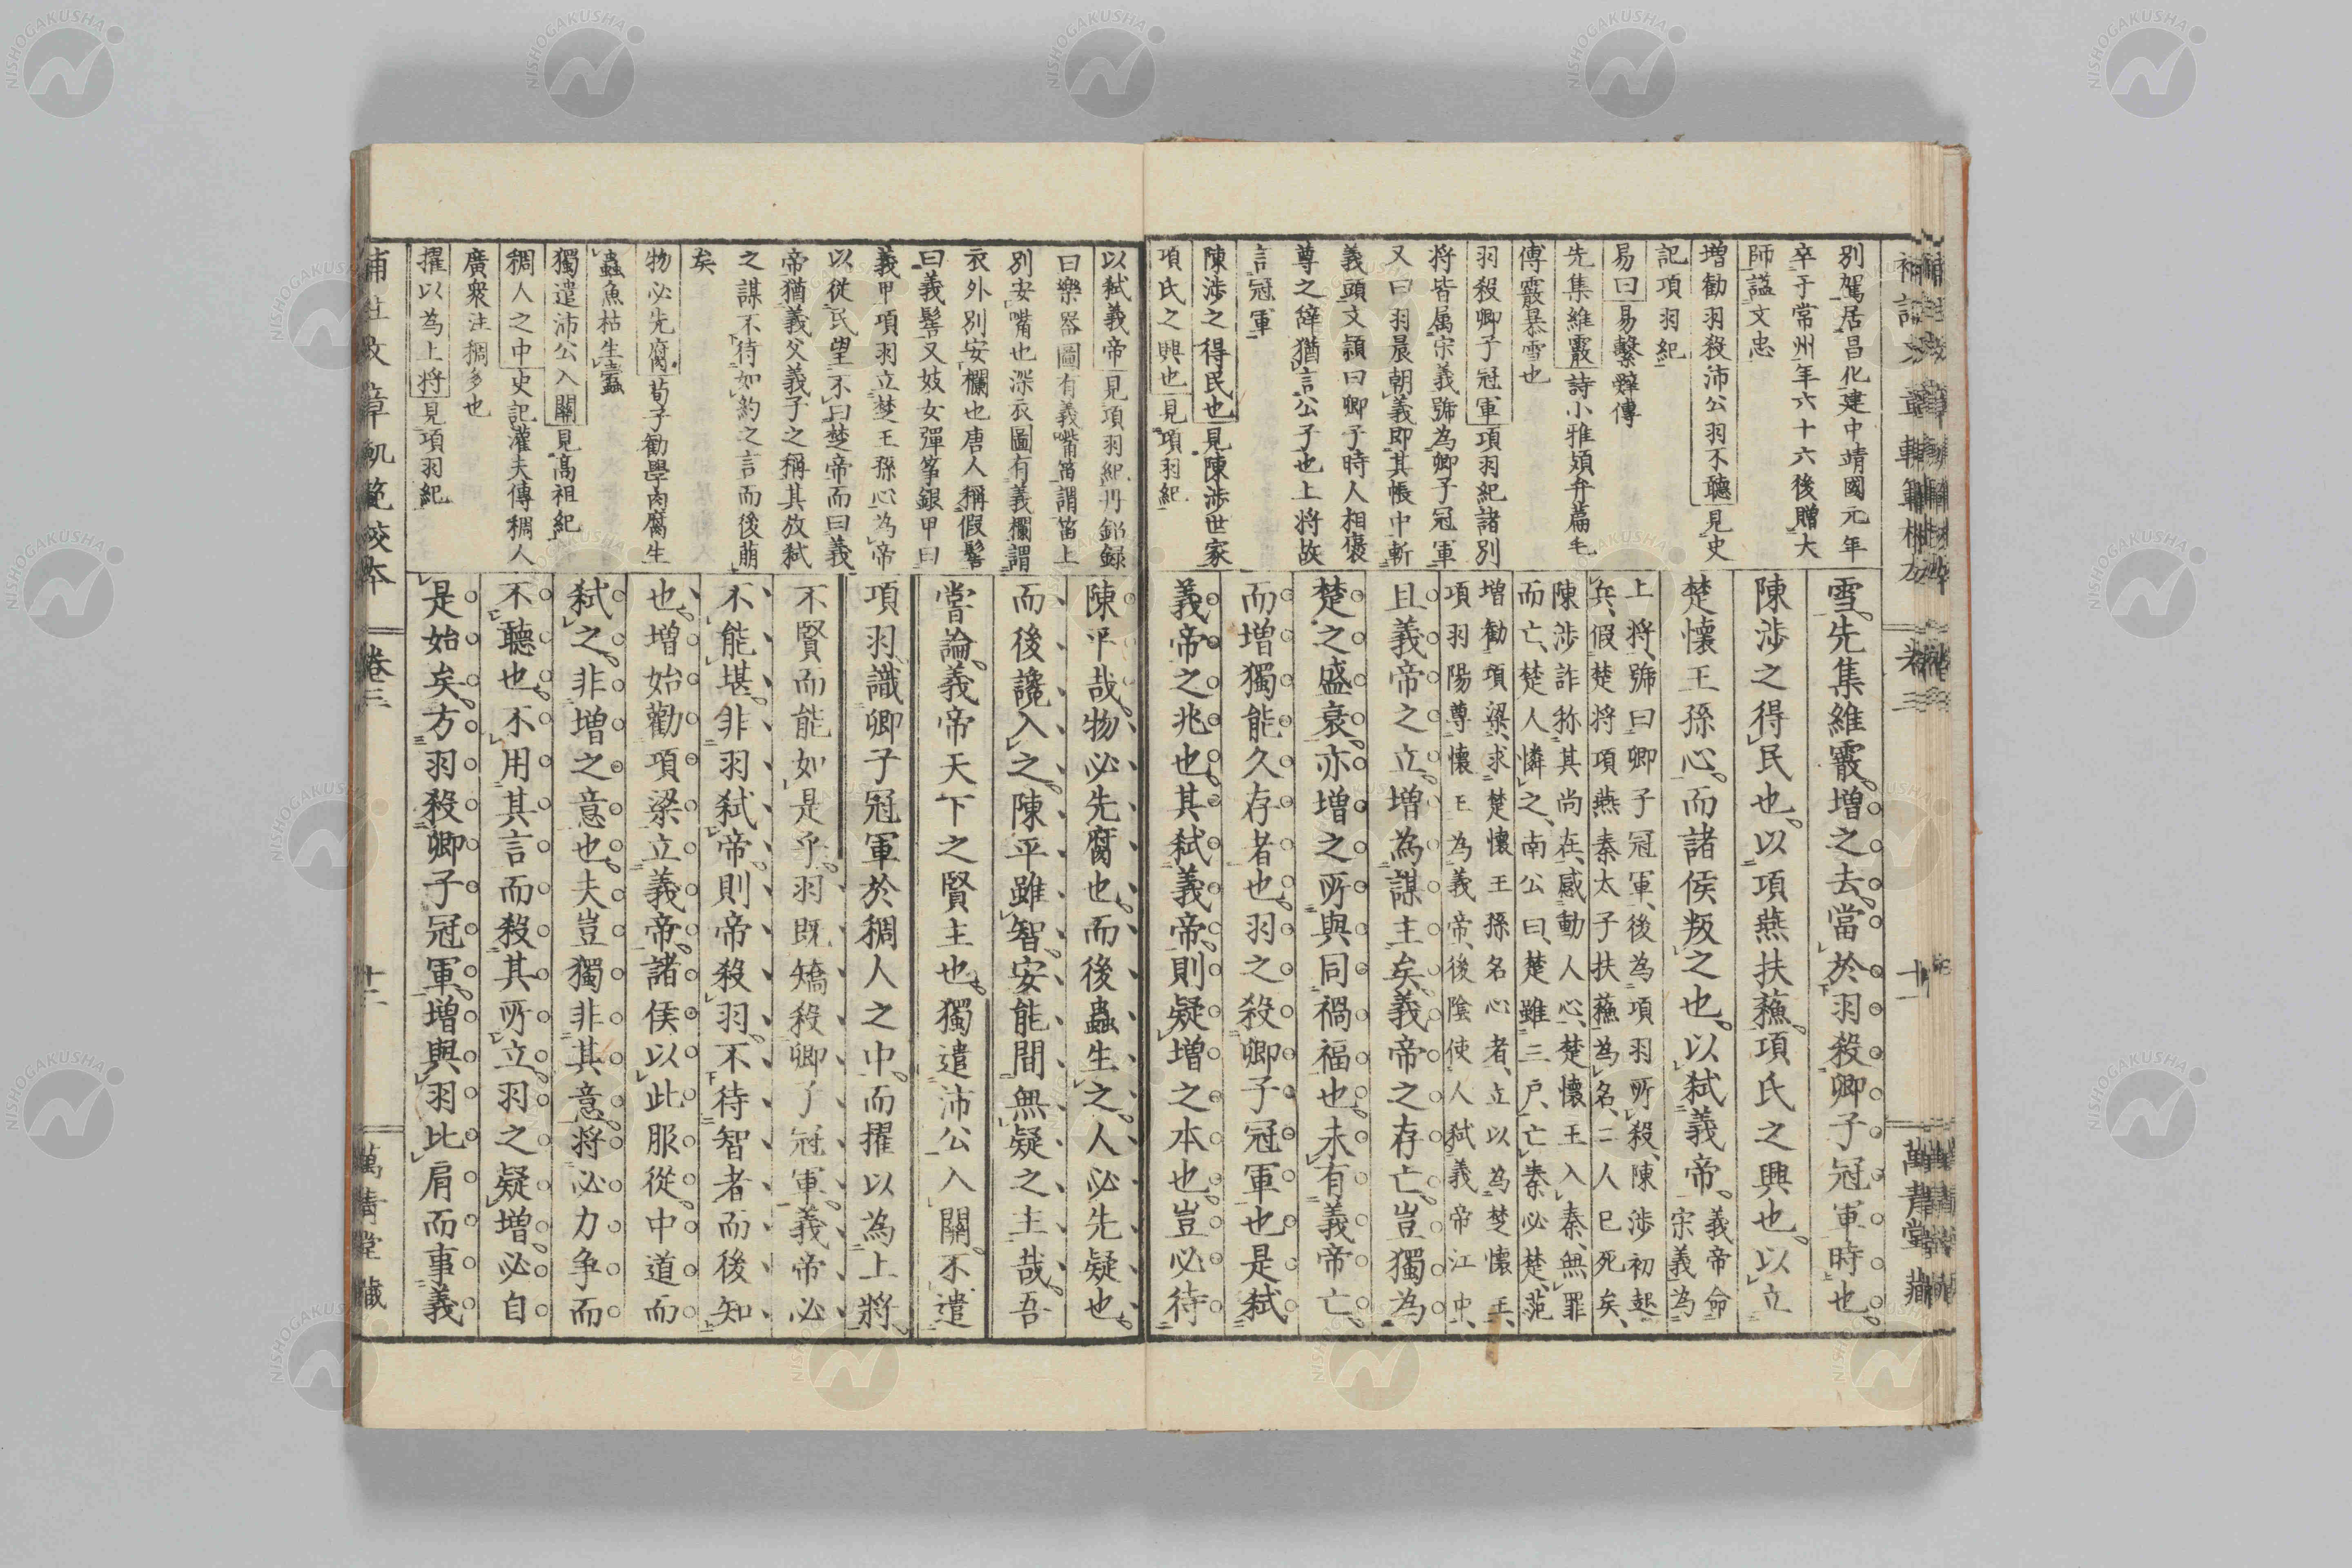 別駕居昌化建中靖國元年
卒于常州年六十六後贈大
師謚文忠
增勸羽殺沛公羽不聽見史
記項羽紀
易曰易繫辭傳
先集維霰詩小雅頍弁篇毛
傳霰暴雪也
羽殺卿子冠軍項羽紀諸別
將皆属宋義號為卿子冠軍
又曰羽晨朝義即其帳中斬
義頭文頴曰卿子時人相褒
尊之辭猶言公子也上將故
言冠軍
陳渉之得民也見陳渉世家
項氏之興也見項羽紀
雪、先集維霰。增之去、當於羽殺卿子冠軍時也。
陳渉之得民也、以項燕扶蘓。項氏之興也、以立
楚懷王孫心。而諸侯叛之也、以弑義帝。義帝命
宋義為
上將、號曰卿子冠軍、後為項羽所殺、陳渉初起
兵、假楚將項燕秦太子扶蘓為名、二人已死矣、
陳渉詐称其尚在、感動人心、楚懷王入秦、無罪
而亡、楚人憐之、南公曰、楚雖三户、亡秦必楚、范
增勸項梁、求楚懷王孫名心者、立以為楚懷王、
項羽陽尊懷王為義帝、後陰使人弑義帝江中、
且義帝之立、增為謀主矣、義帝之存亡、豈獨為
楚之盛衰、亦增之所與同禍福也、未有義帝亡、
而增獨能久存者也、羽之殺卿子冠軍也是弑
義帝之兆也、其弑義帝、則疑增之本也、豈必待
以弑義帝見項羽紀丹鉛録
曰樂器圖有義嘴笛謂笛上
別安嘴也深衣圖有義欄謂
衣外別安欄也唐人稱假髻
曰義髻又妓女彈筝銀甲曰
義甲項羽立楚王孫心為帝
以從民望不曰楚帝而曰義
帝猶義父義子之稱其放弑
之謀不待如約之言而後萌
矣
物必先腐荀子勸學肉腐生
蟲魚枯生蠧
獨遣沛公入關見髙祖紀
稠人之中史記灌夫傳稠人
廣衆注稠多也
擢以為上将見項羽紀
陳平哉。物必先腐也、而後蟲生之、人必先疑也、
而後讒入之。陳平雖智、安能間無疑之主哉。吾
嘗論、義帝天下之賢主也。獨遣沛公入關、不遣
項羽、識卿子冠軍於稠人之中、而擢以為上將、
不賢而能如是乎。羽既矯殺卿子冠軍、義帝必
不能堪。非羽弑帝、則帝殺羽、不待智者而後知
也。增始勸項梁立義帝、諸侯以此服從、中道而
弑之、非增之意也、夫豈獨非其意、将必力争而
不聽也、不用其言而殺其所立、羽之疑增、必自
是始矣。方羽殺卿子冠軍、增與羽比肩而事義
補註文章軌範校本
卷三
十二
萬青堂藏